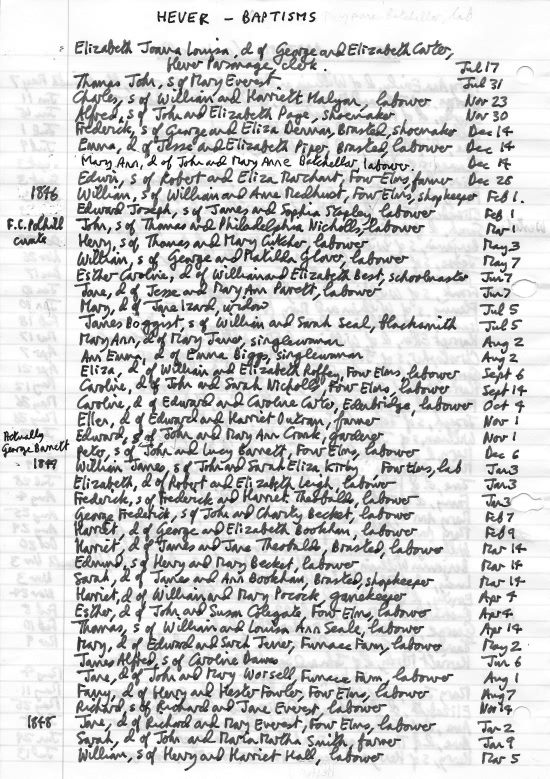 HEVER - BAPTISMS
Elizabeth Joanna Louisa, d of George and Elizabeth Carter,
Hever Parsonage, clerk. Jul 17
Thomas John, s of Mary Everest. Jul 31
Charles, s of William and Harriett Malyan, labower Nov 23
Alfred, s of John and Elizabeth Page, shoemaker Nov 30
Frederick, s of George and Eliza Denman, Brasted, shoemaker Dec 14
Emma, d of Jesse and Elizabeth Piper, Brasted, labower Dec 14
Mary Ann, d of John and Mary Anne Batchellor, labower. Dec 14
Edwin, s of Robert and Eliza Marchant, Four Elms, farmer Dec 28
1846 William, s of William and Anne Medhurst, Four Elms, shopkeeper Feb 1.
Edward Joseph, s of James and Sophia Stapley, labower Feb 1
F.C. Polhill John, s of Thomas and Philadelphia Nicholls, labower Mar 1
curate Henry, s of Thomas and Mary Cutcher, labower May 3
William, s of George and Matilda Glover, labower May 7
Esther Caroline, d of William and Elizabeth Best, schoolmaster Jun 7
Jane, d of Jesse and Mary Ann Parrett, labower Jun 7
Mary, d of Jane Izard, widow Jul 5
James Boggust, s of William and Sarah Seal, blacksmith Jul 5
Mary Ann, d of Mary Jenner, singlewoman Aug 2
Ann Emma, d of Emma Biggs, singlewoman Aug 2
Eliza, d of William and Elizabeth Roffey, Four Elms, labower Sept 6
Caroline, d of John and Sarah Nicholls, Four Elms, labower Sept 14
Caroline, d of Edward and Caroline Carter, Edenbridge, labower Oct 4
Ellen, d of Edward and Harriet Outram, farmer Nov 1
Actually Edward, s of John and Mary Ann Cronk, gardener Nov 1
George Barnett Peter, s of John and Lucy Barnett, Four Elms, labower Dec 6
1847 William James, s of John and Sarah Eliza Kirby Four Elms, lab Jan 3
Elizabeth, d of Robert and Elizabeth Leigh, labower Jan 3
Frederick, s of Frederick and Harriet Theobalds, labower Jan 3
George Frederick, s of John and Charity Becket, labower Feb 7
Harriet, d of George and Elizabeth Bookham, labower Feb 9
Harriet, d of James and Jane Theobalds, Brasted, labower Mar 14
Edmund, s of Henry and Mary Becket, labower Mar 14
Sarah, d of James and Ann Bookham, Brasted, shopkeeper Mar 14
Harriet, d of William and Mary Pocock, gamekeeper Apr 4
Esther, d of John and Susan Colegate, Four Elms, labower Apr 4
Thomas, s of William and Louisa Ann Seale, labower Apr 14
Mary, d of Edward and Sarah Jenner, Furnace Farm, labower May 2
James Alfred, s of Caroline Dawes Jun 6
Jane, d of John and Mary Worsell, Furnace Farm, labower Aug 1
Fanny, d of Henry and Hester Fowler, Four Elms, labower Aug 7
Richard, s of Richard and Jane Everest, labower Nov 14
1848 Jane, d of Richard and Mary Everest, Four Elms, labower Jan 2
Sarah, d of John and Maria Martha Smith, farmer Jan 9
William, s of Henry and Harriet Hall, labower Mar 5